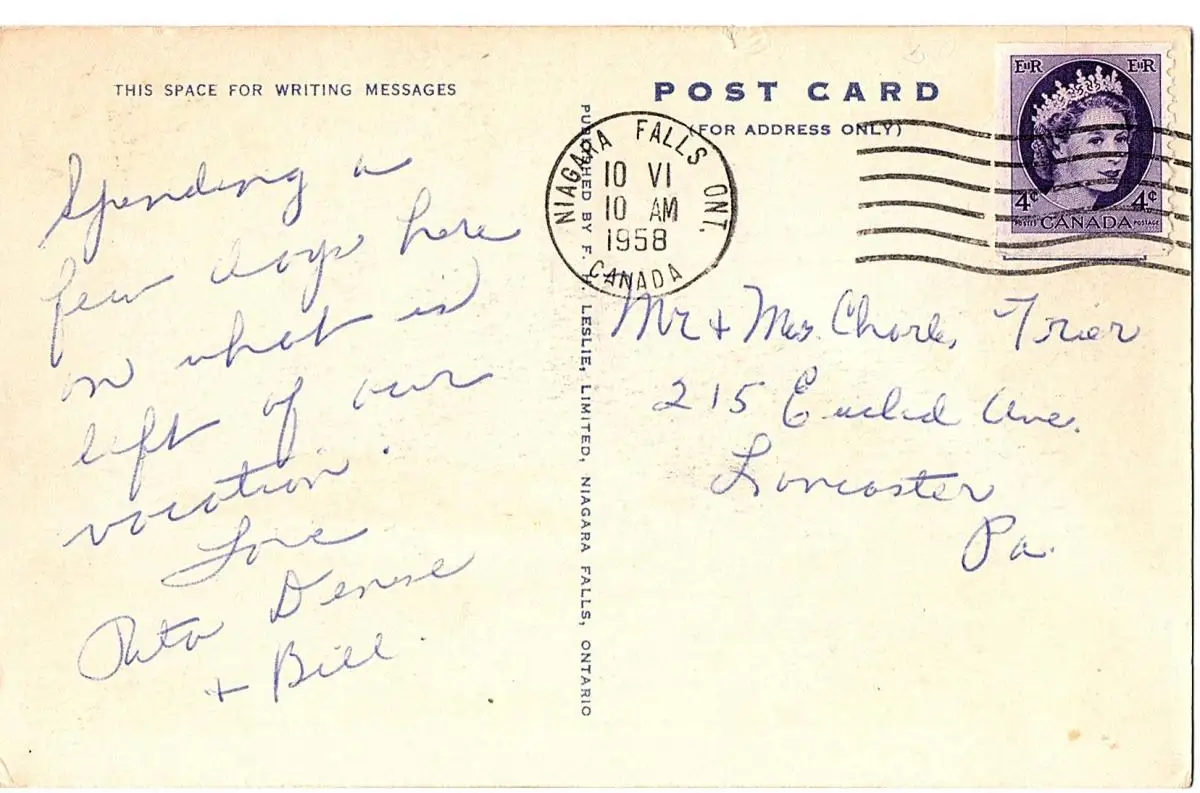 THIS SPACE FOR WRITING MESSAGES
Spending a
few days here
on what is
left of our
vacation.
Love
Denise
+ Bill.
PUBLISHED BY F. H. LESLIE, LIMITED, NIAGARA FALLS, ONTARIO
POST CARD
(FOR ADDRESS ONLY)
NIAGARA FALLS ONT.
10 VI
10 AM
1958
CANADA
EIIR EIIR
4¢ 4¢
POSTES CANADA POSTAGE
Mr + Mrs. Charles Trier
215 Euclid Ave.
Lancaster
Pa.